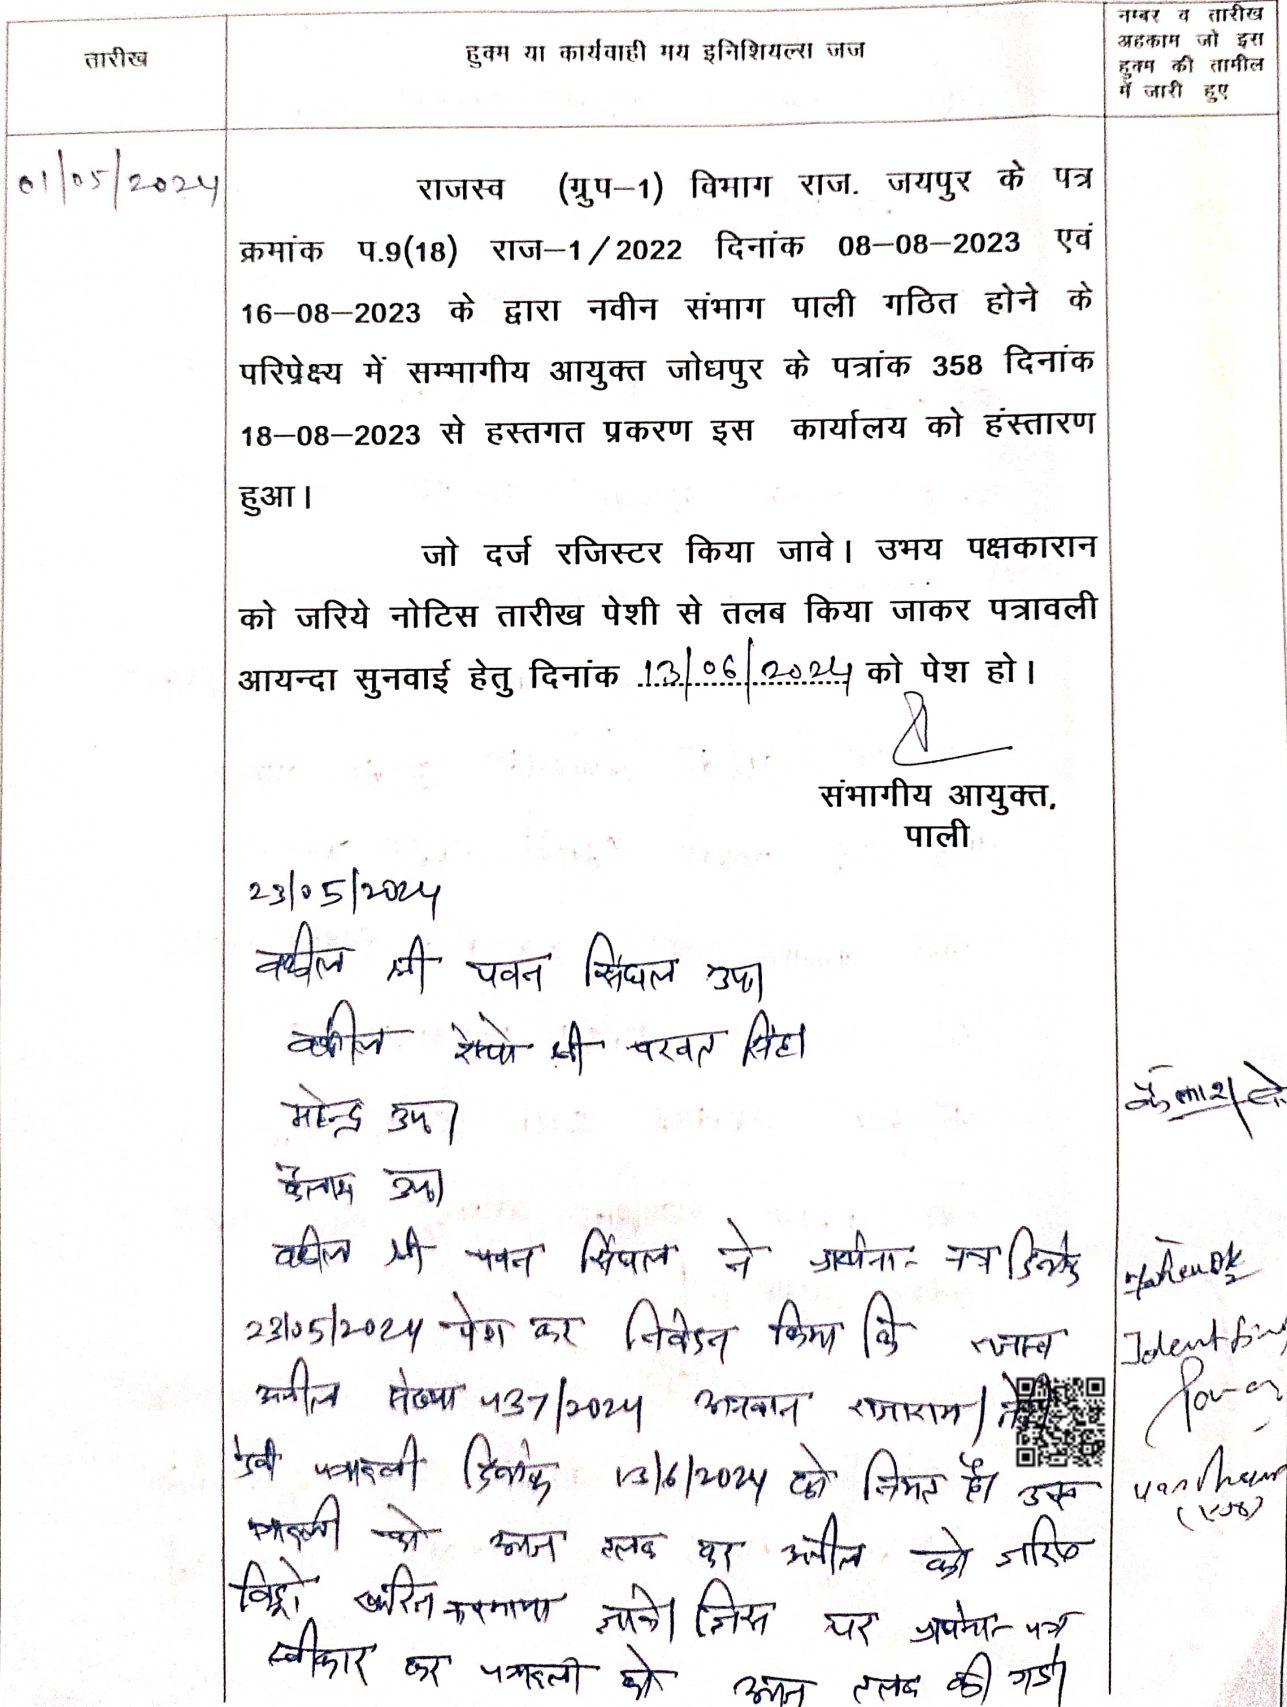 तारीख
हुक्म या कार्यवाही मय इनिशियल्स जज
नम्बर व तारीख
अहकाम जो इस
हुक्म की तामील
में जारी हुए
01/05/2024
राजस्व (ग्रुप-1) विभाग राज. जयपुर के पत्र
क्रमांक प.9(18) राज-1/2022 दिनांक 08-08-2023 एवं
16-08-2023 के द्वारा नवीन संभाग पाली गठित होने के
परिप्रेक्ष्य में सम्भागीय आयुक्त जोधपुर के पत्रांक 358 दिनांक
18-08-2023 से हस्तगत प्रकरण इस कार्यालय को हंस्तारण
हुआ।
जो दर्ज रजिस्टर किया जावे। उभय पक्षकारान
को जरिये नोटिस तारीख पेशी से तलब किया जाकर पत्रावली
आयन्दा सुनवाई हेतु दिनांक 13/06/2024 को पेश हो।
संभागीय आयुक्त,
पाली
23/05/2024
वकील श्री पवन सिंघल उप।
वकील रेस्पो श्री परवत सिंह।
महेन्द्र उप।
कैलाश उप।
वकील श्री पवन सिंघल ने प्रार्थना-पत्र दिनांक
23/05/2024 पेश कर निवेदन किया कि राजस्व
अपील संख्या 437/2024 अनवान राजाराम/
देवी पत्रावली दिनांक 13/6/2024 को नियत है। उक्त
पत्रावली को आज तलब कर अपील को जरिये
विड्रो खारिज फरमाया जावे। जिस पर प्रार्थना-पत्र
स्वीकार कर पत्रावली को आज तलब की गई।
कैलाश
Mahendra